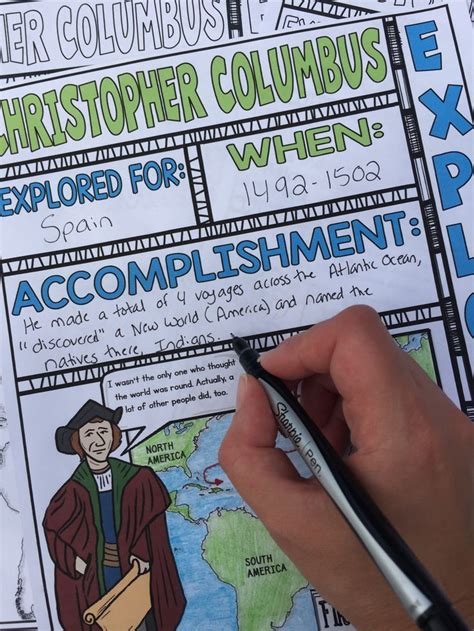 ER COLUMBUS
CHRISTOPHER COLUMBUS
EXPLORED FOR:
Spain
WHEN:
1492-1502
ACCOMPLISHMENT:
He made a total of 4 voyages across the Atlantic Ocean,
"discovered" a New World (America) and named the
natives there, Indians.
I wasn't the only one who thought
the world was round. Actually, a
lot of other people did, too.
NORTH
AMERICA
SOUTH
AMERICA
EXPLO
Sharpie Pen